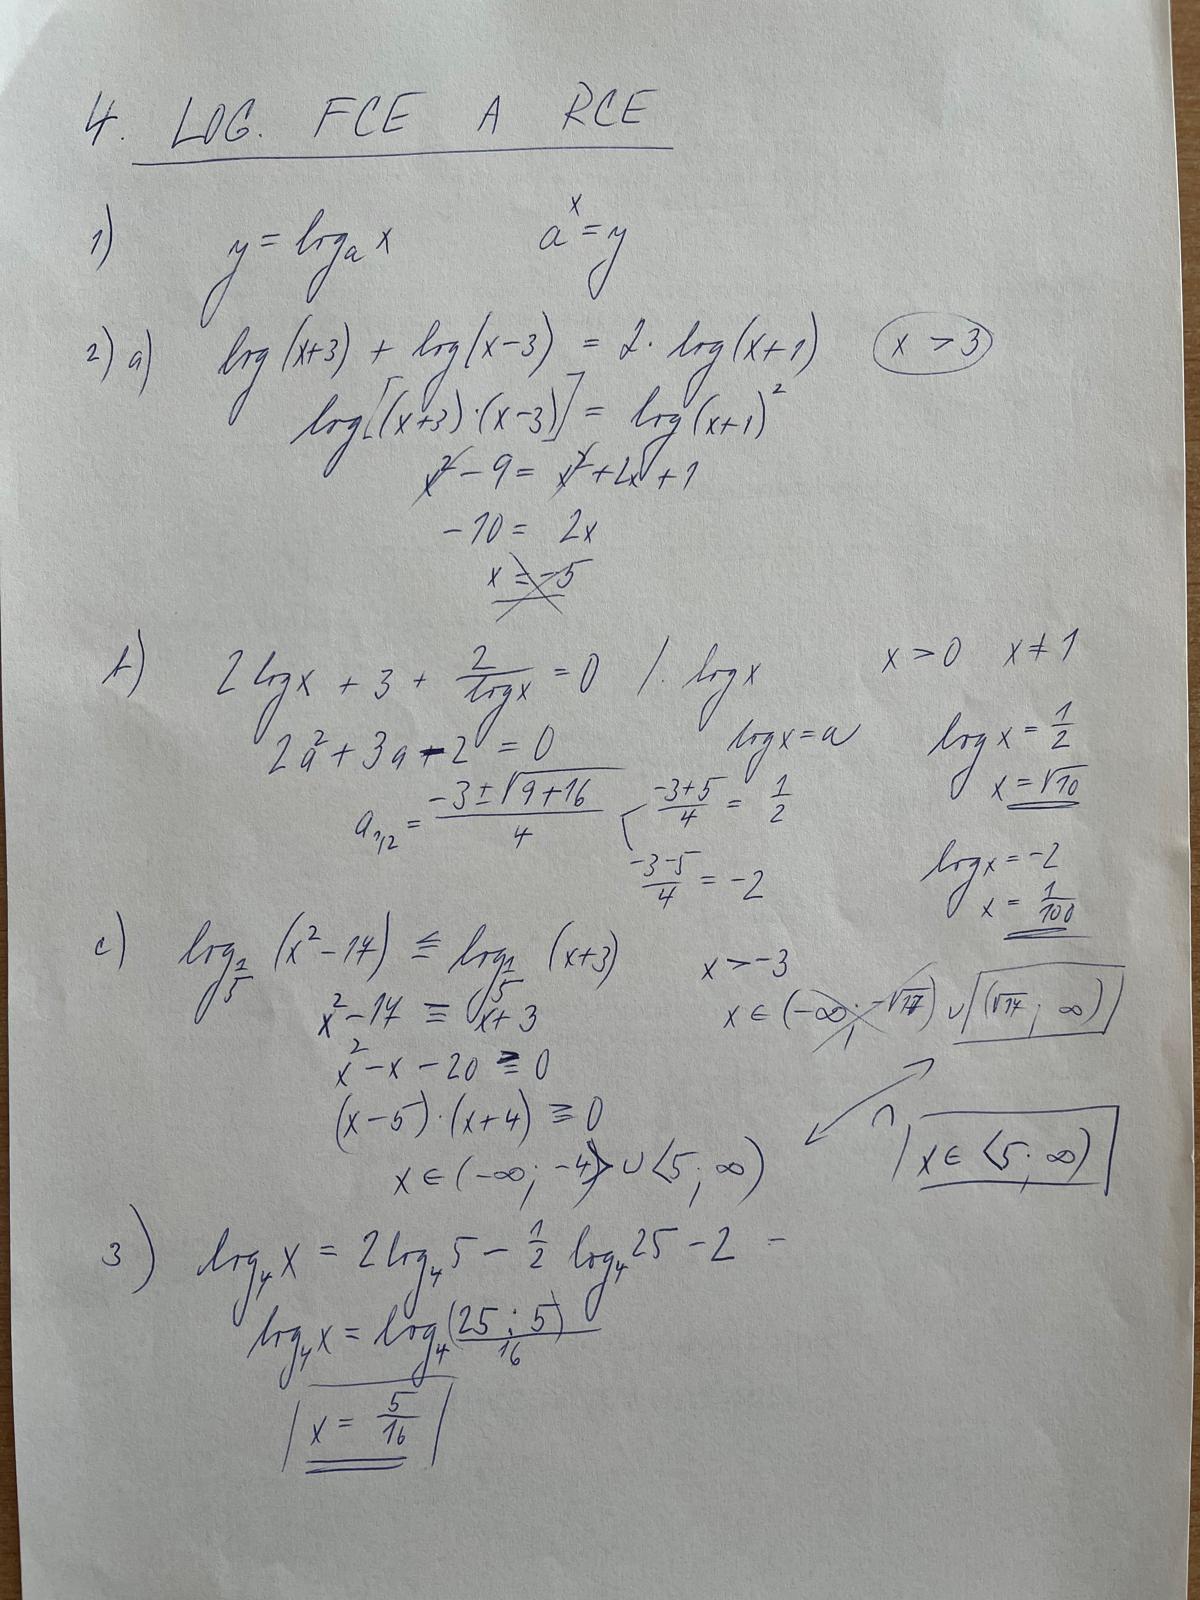 4. LOG. FCE A RCE
1) y = logₐ x aˣ = y
2) a) log (x+3) + log (x-3) = 2 · log (x+1) x > 3
log [(x+3) · (x-3)] = log (x+1)²
x² - 9 = x² + 2x + 1
-10 = 2x
x = -5
b) 2 log x + 3 + 2/log x = 0 / · log x x > 0 x ≠ 1
2a² + 3a - 2 = 0 log x = a log x = 1/2
x = √10
a₁,₂ = (-3 ± √(9+16))/4 (-3+5)/4 = 1/2
(-3-5)/4 = -2 log x = -2
x = 1/100
c) log_{1/5} (x² - 17) ≤ log_{1/5} (x+3) x > -3
x² - 17 ≥ x + 3 x ∈ (-∞; -√17) ∪ (√17; ∞)
x² - x - 20 ≥ 0
(x-5) · (x+4) ≥ 0
x ∈ (-∞; -4⟩ ∪ ⟨5; ∞) ∩ x ∈ ⟨5; ∞)
3) log₄ x = 2 log₄ 5 - 1/2 log₄ 25 - 2 =
log₄ x = log₄ (25 : 5)/16
x = 5/16